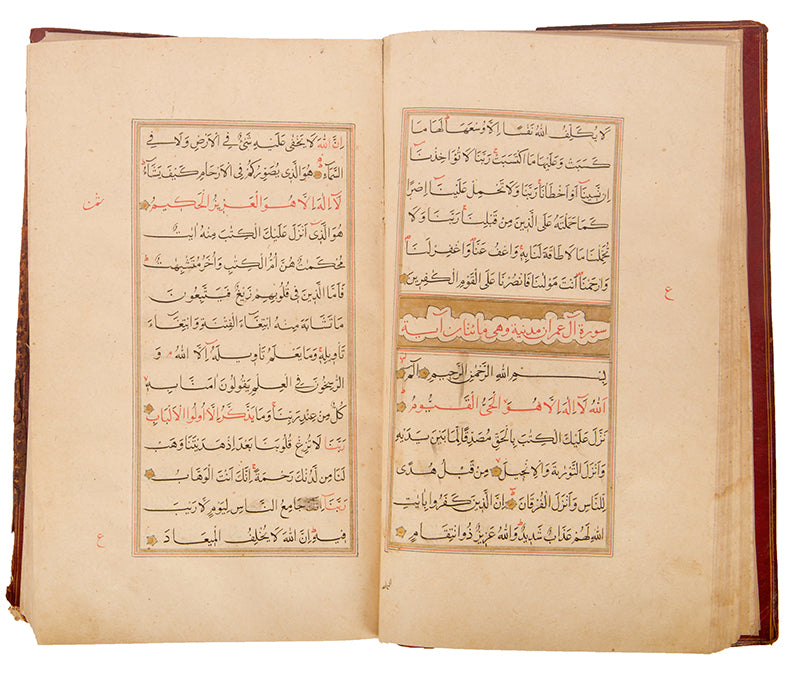 لَا يُكَلِّفُ اللّٰهُ نَفْسًا اِلَّا وُسْعَهَا لَهَا مَا
كَسَبَتْ وَعَلَيْهَا مَا اكْتَسَبَتْ رَبَّنَا لَا تُؤَاخِذْنَا
اِنْ نَسِينَا اَوْ اَخْطَاْنَا رَبَّنَا وَلَا تَحْمِلْ عَلَيْنَا اِصْرًا
كَمَا حَمَلْتَهُ عَلَى الَّذِينَ مِنْ قَبْلِنَا رَبَّنَا وَلَا
تُحَمِّلْنَا مَا لَا طَاقَةَ لَنَا بِهِ وَاعْفُ عَنَّا وَاغْفِرْ لَنَا
وَارْحَمْنَا اَنْتَ مَوْلٰينَا فَانْصُرْنَا عَلَى الْقَوْمِ الْكٰفِرِينَ
ع
سورة آل عمران مدنية وهي مائتان آية
بِسْمِ اللّٰهِ الرَّحْمٰنِ الرَّحِيمِ الٓمٓ
اَللّٰهُ لَا اِلٰهَ اِلَّا هُوَ الْحَيُّ الْقَيُّومُ
نَزَّلَ عَلَيْكَ الْكِتٰبَ بِالْحَقِّ مُصَدِّقًا لِمَا بَيْنَ يَدَيْهِ
وَاَنْزَلَ التَّوْرٰيةَ وَالْاِنْجِيلَ مِنْ قَبْلُ هُدًى
لِلنَّاسِ وَاَنْزَلَ الْفُرْقَانَ اِنَّ الَّذِينَ كَفَرُوا بِاٰيٰتِ
اللّٰهِ لَهُمْ عَذَابٌ شَدِيدٌ وَاللّٰهُ عَزِيزٌ ذُو انْتِقَامٍ
اِنَّ اللّٰهَ لَا يَخْفٰى عَلَيْهِ شَيْءٌ فِي الْاَرْضِ وَلَا فِي
السَّمَاءِ هُوَ الَّذِي يُصَوِّرُكُمْ فِي الْاَرْحَامِ كَيْفَ يَشَاءُ
لَا اِلٰهَ اِلَّا هُوَ الْعَزِيزُ الْحَكِيمُ
ثمن
هُوَ الَّذِي اَنْزَلَ عَلَيْكَ الْكِتٰبَ مِنْهُ اٰيٰتٌ
مُحْكَمٰتٌ هُنَّ اُمُّ الْكِتٰبِ وَاُخَرُ مُتَشٰبِهٰتٌ
فَاَمَّا الَّذِينَ فِي قُلُوبِهِمْ زَيْغٌ فَيَتَّبِعُونَ
مَا تَشَابَهَ مِنْهُ ابْتِغَاءَ الْفِتْنَةِ وَابْتِغَاءَ
تَاْوِيلِهِ وَمَا يَعْلَمُ تَاْوِيلَهُ اِلَّا اللّٰهُ وَ
الرّٰسِخُونَ فِي الْعِلْمِ يَقُولُونَ اٰمَنَّا بِهِ
كُلٌّ مِنْ عِنْدِ رَبِّنَا وَمَا يَذَّكَّرُ اِلَّا اُولُوا الْاَلْبَابِ
رَبَّنَا لَا تُزِغْ قُلُوبَنَا بَعْدَ اِذْ هَدَيْتَنَا وَهَبْ
لَنَا مِنْ لَدُنْكَ رَحْمَةً اِنَّكَ اَنْتَ الْوَهَّابُ
رَبَّنَا اِنَّكَ جَامِعُ النَّاسِ لِيَوْمٍ لَا رَيْبَ
فِيهِ اِنَّ اللّٰهَ لَا يُخْلِفُ الْمِيعَادَ
ع